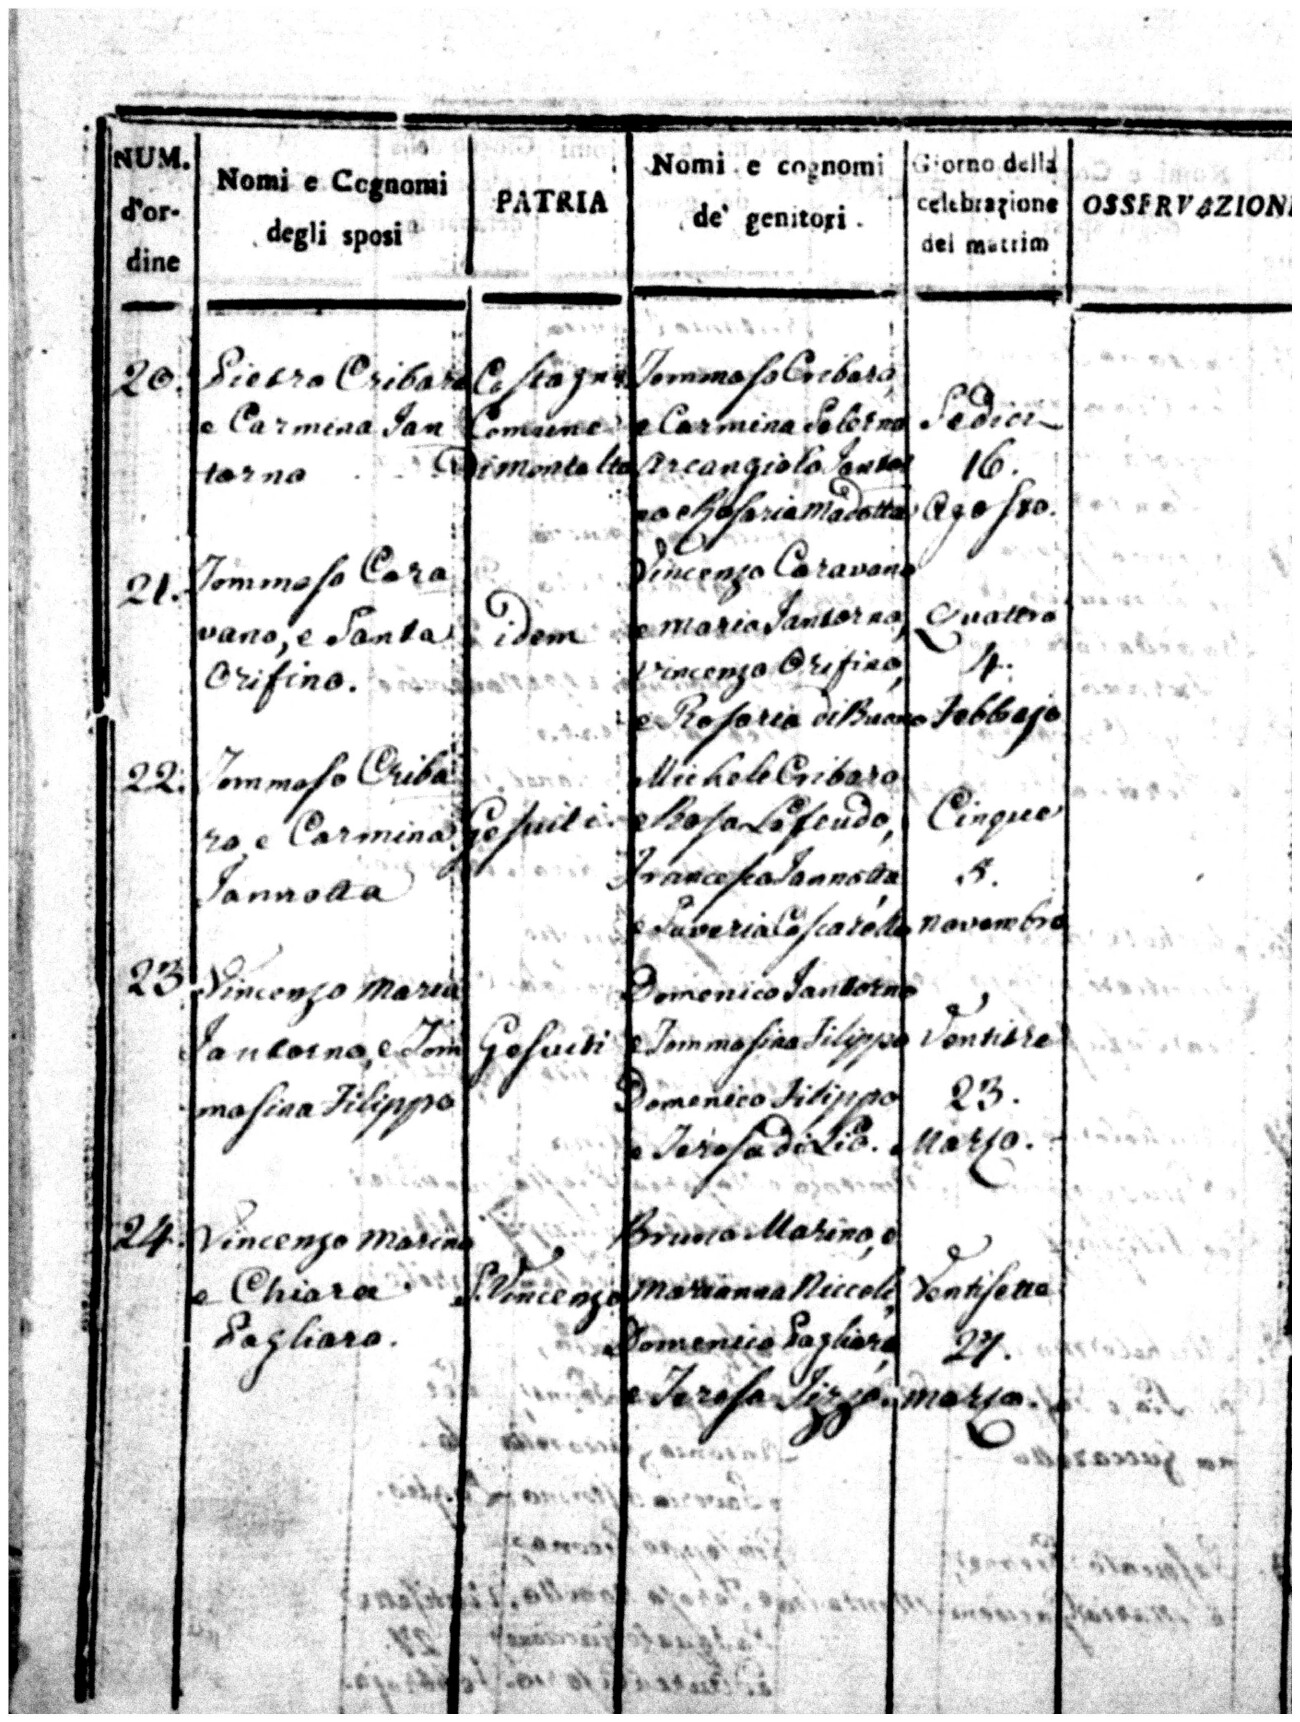 NUM.
d'or-
dine
Nomi e Cognomi
degli sposi
PATRIA
Nomi e cognomi
de' genitori.
Giorno della
celebrazione
del matrim
OSSERVAZIONI
20. Pietro Cribaro
e Carmina Jan
torno
Comune
Di Montalto
Tommaso Cribaro,
e Carmina Salerno
Arcangiolo Jantor
no e Rosaria Madotta
Sedici
16.
Agosto.
21. Tommaso Cara
vano, e Santa
Orifino.
idem
Vincenzo Caravano
e Maria Jantorno,
Vincenzo Orifino,
e Rosaria di Buono
Quattro
4.
Febbrajo
22. Tommaso Criba
ro, e Carmina
Jannotta
Gesuiti
Michele Cribaro
e Rosa Lofeudo,
Francesco Jannotta
e Saveria
Cinque
5.
Novembre
23 Vincenzo Maria
Jantorno, e Tom
masina Filippo
Gesuiti
Domenico Jantorno
e Tommasina Filippo
Domenico Filippo
e Teresa di Lio.
Ventitre
23.
Marzo.
24. Vincenzo Marino
e Chiara
Pagliaro.
S. Vincenzo
Bruno Marino, e
Marianna Niccoli,
Domenico Pagliaro,
e Teresa Tizzo.
Ventisette
27.
Marzo.